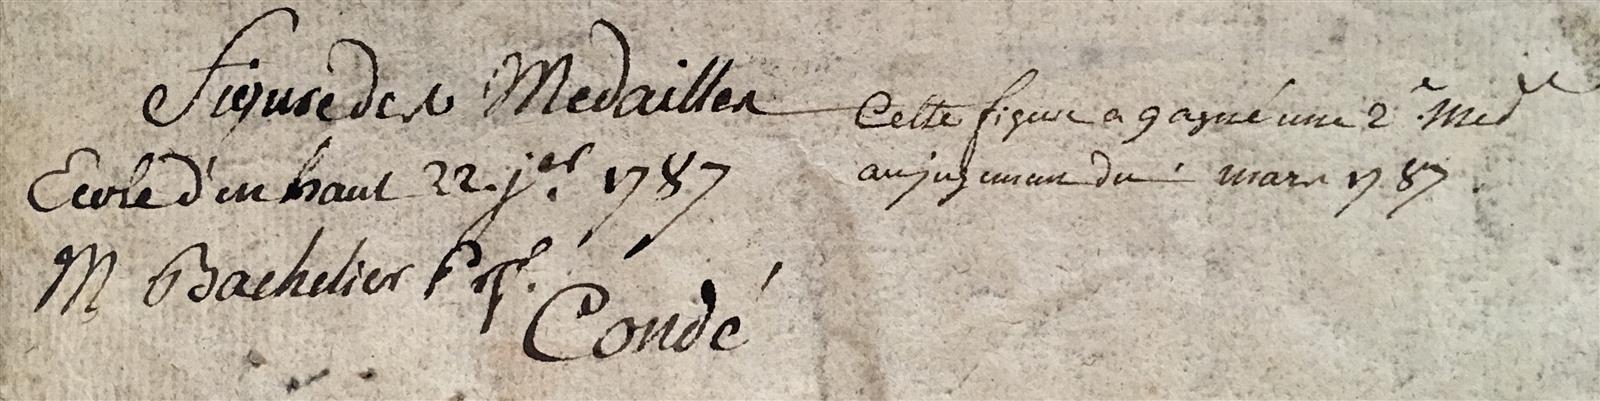 Figure des Medailles
Ecole d'en haut 22 j.er 1787
M Bachelier Prof.
Condé
Cette figure a gagné une 2e Med
au jugement du mars 1787.